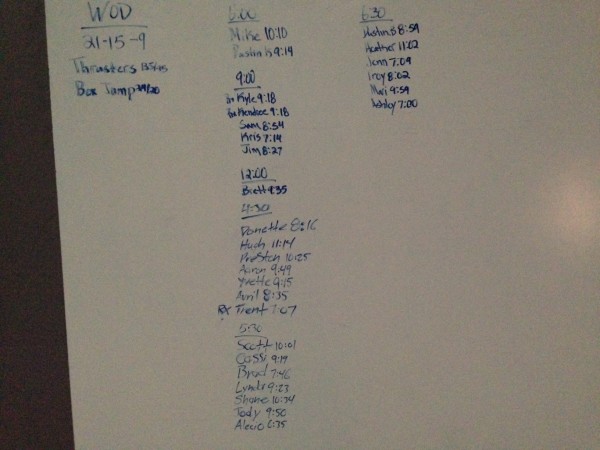 WOD
21-15-9
Thrusters
Box Jump 24/20
Mike 10:10
9:14
9:00
Rx Kyle 9:18
Rx 9:18
Sam 8:54
Kris 7:14
Jim 8:27
12:00
Brett 9:35
4:30
Danette 8:16
Hugh 11:14
Preston 10:25
Aaron 9:49
Yvette 9:15
April 8:35
Rx Trent 7:07
5:30
Scott 10:01
Cassi 9:19
Brad 7:46
9:23
Shane 10:34
Jody 9:50
6:35
6:30
8:59
Heather 11:02
Jenn 7:09
Troy 8:02
9:59
Ashby 7:00